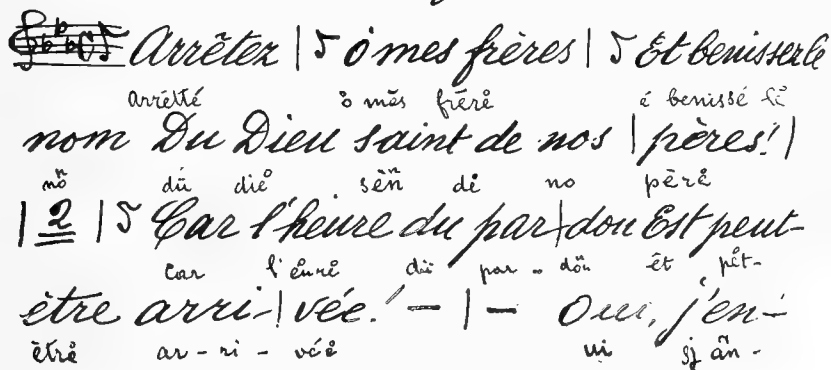 Arrêtez | ô mes frères | Et benisser le
arrêté ô mês frérè é benissé lè
nom Du Dieu saint de nos | pères! |
nõ dü diè sèñ dè no pèrè
| 2 | Car l'heure du par | don Est peut-
car l'èurè dü par - dõn êt pèt-
être arri- | vée! - | - Oui, j'en-
ètrè ar - ri - véè ui sj ãn -